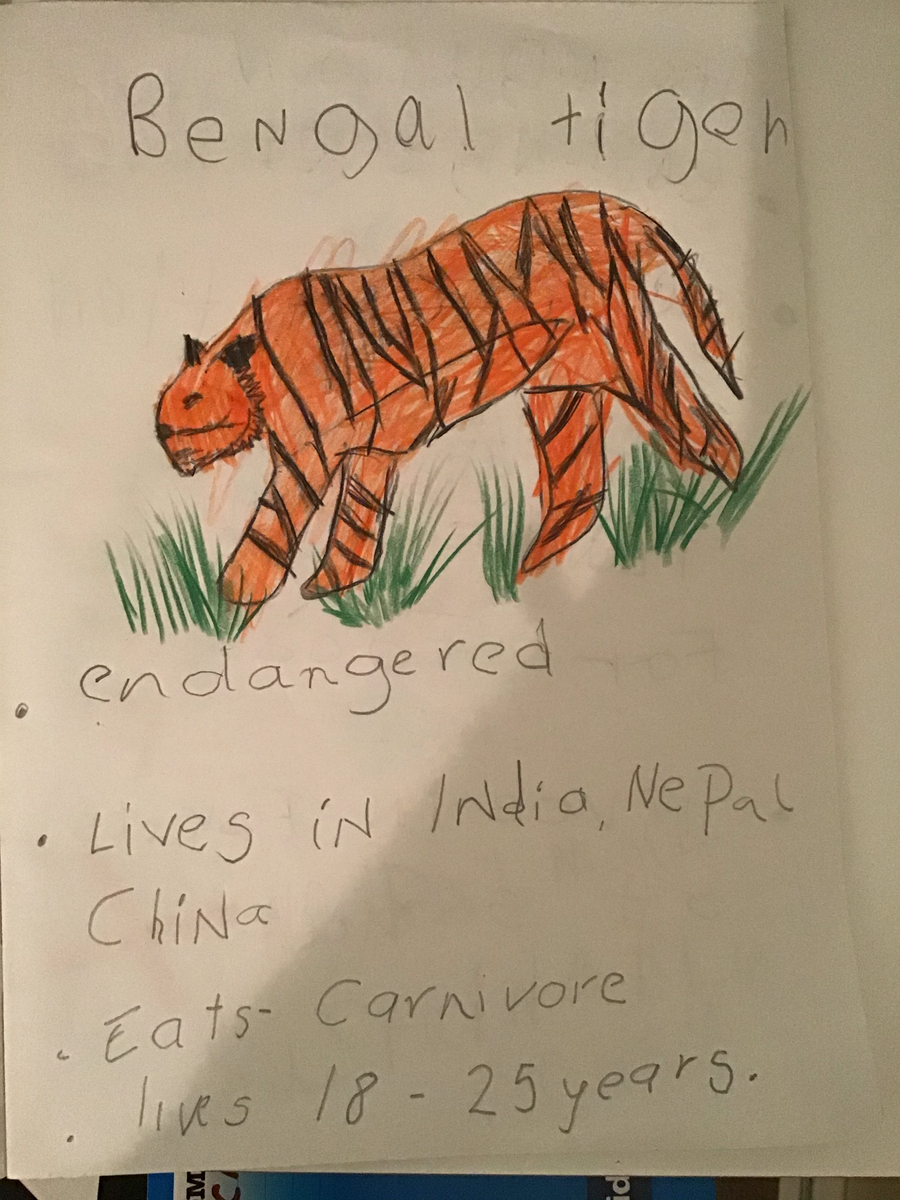 Bengal tiger
endangered
• Lives in India, Nepal
China
• Eats- Carnivore
• lives 18 - 25 years.